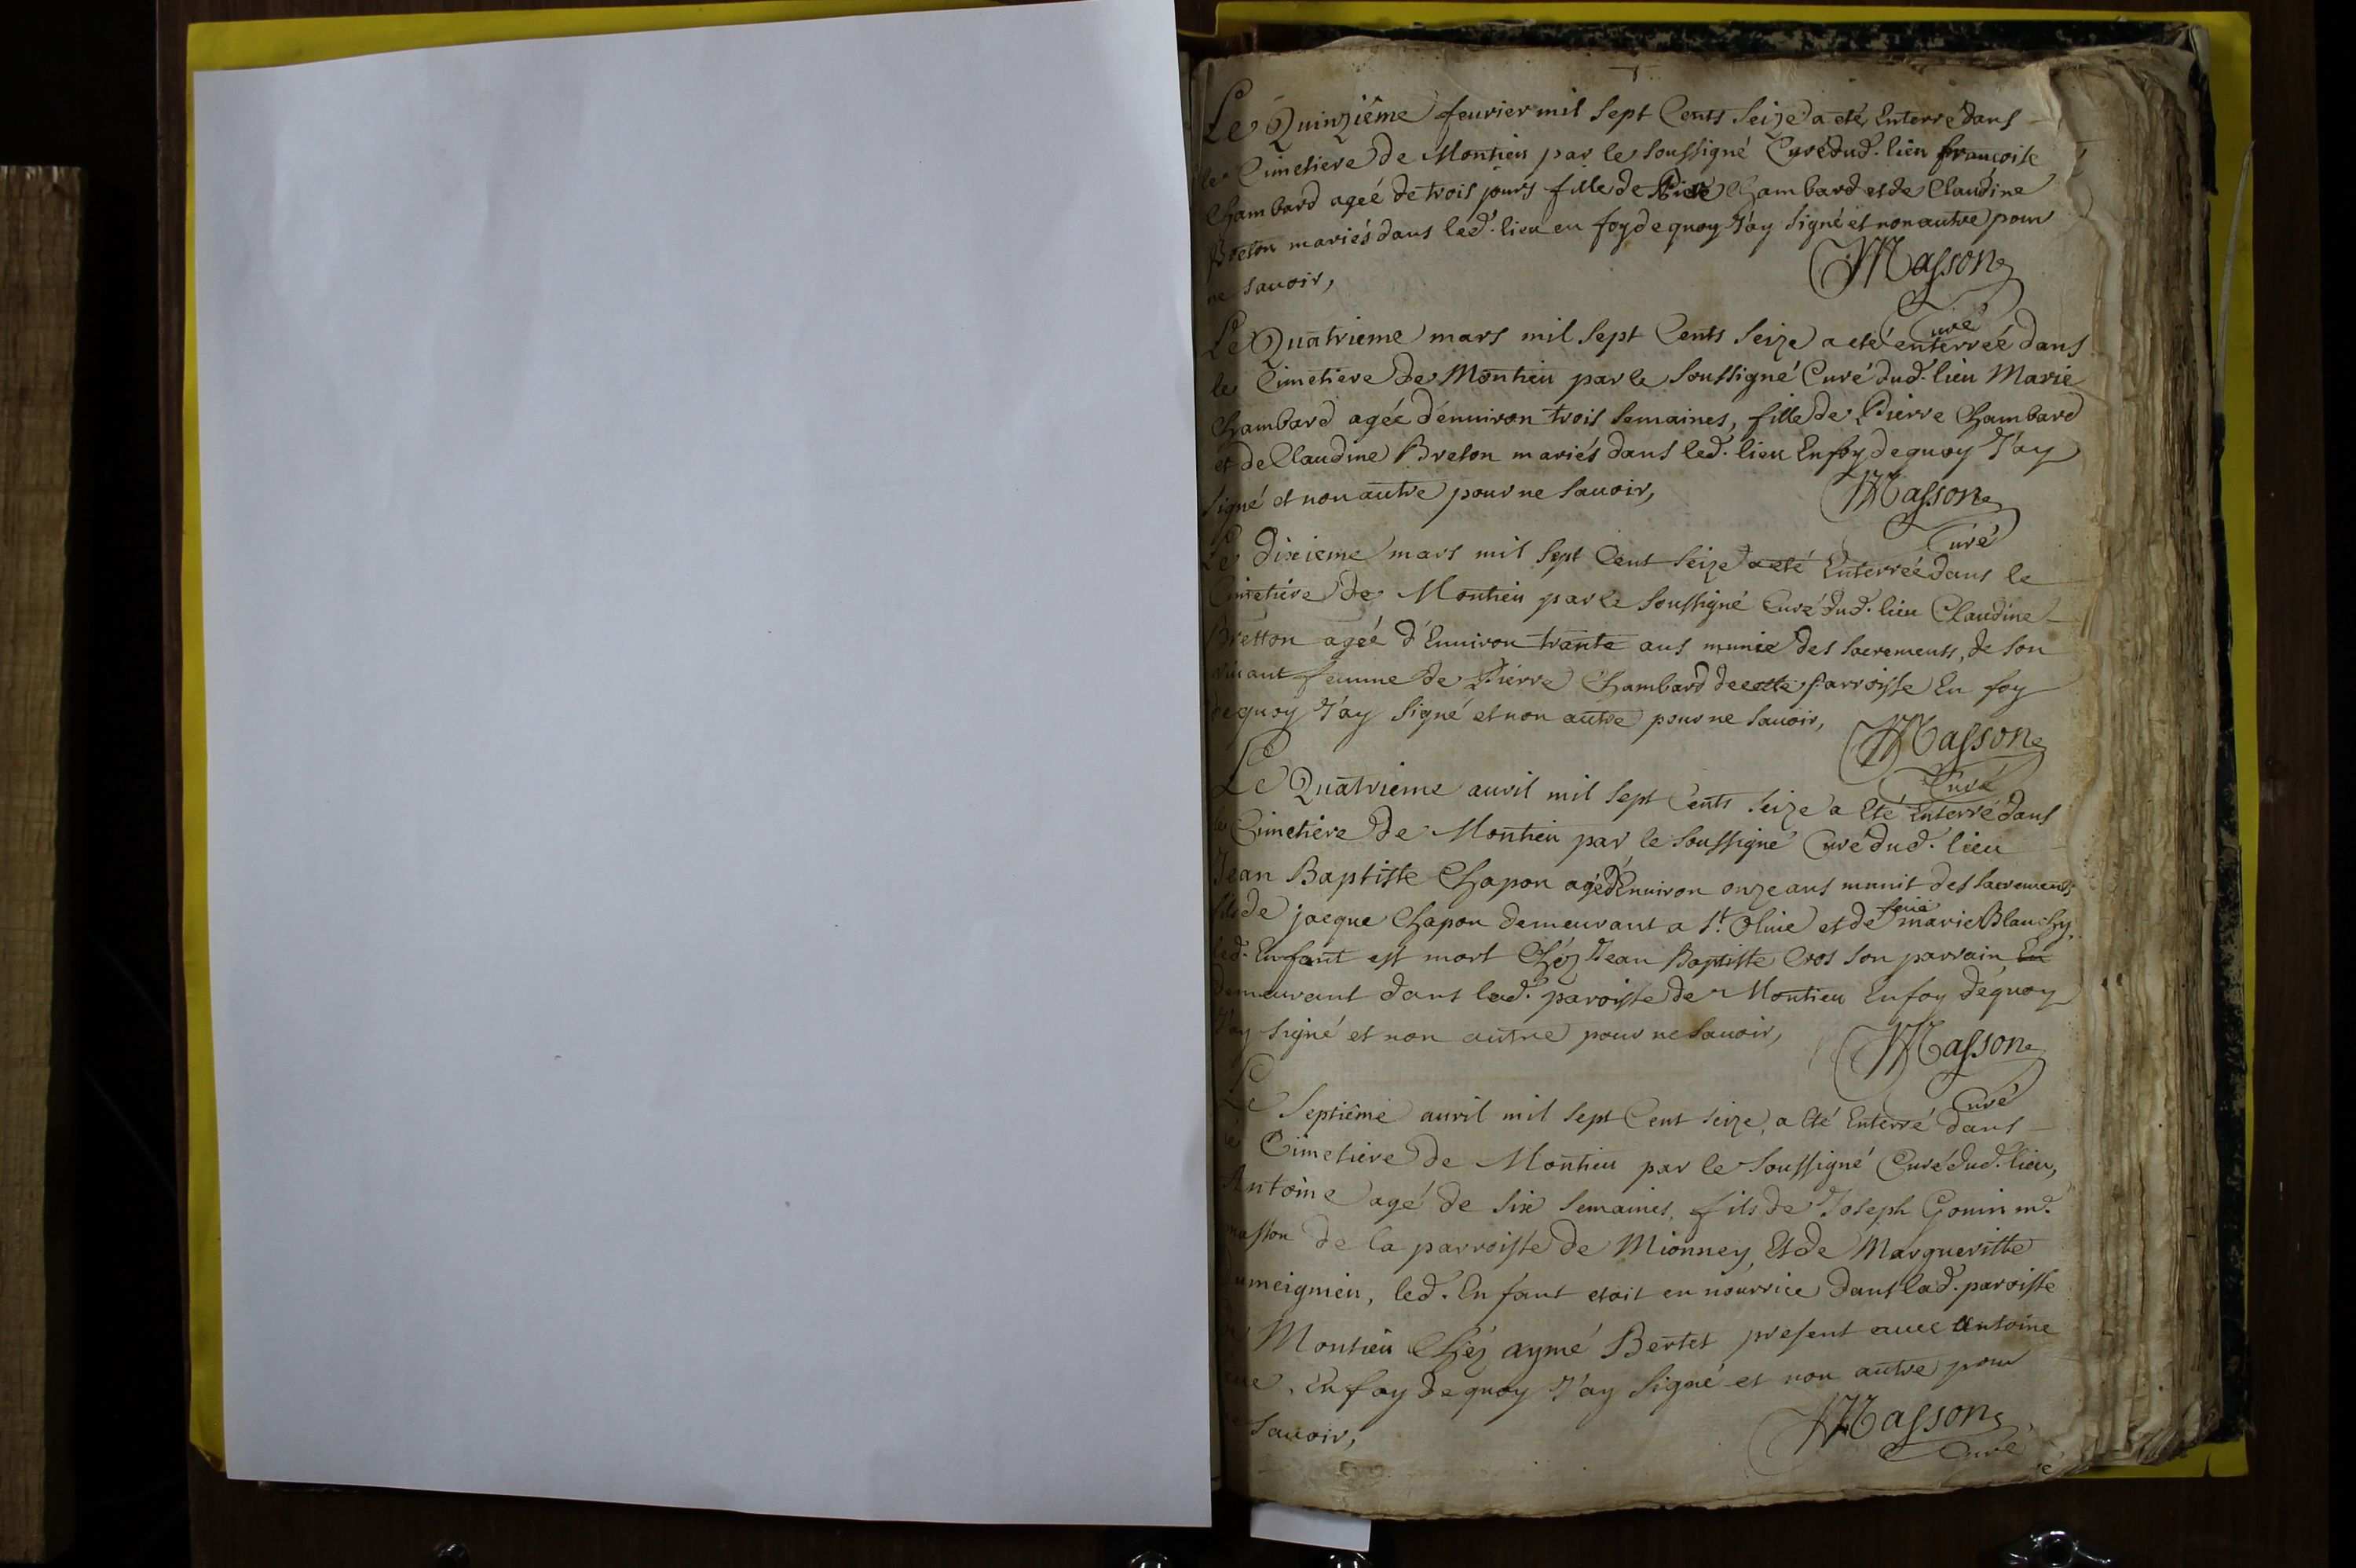 Le Quinziême feurier mil sept Cents seize a eté Enterré dans
le Cimetiere de Montieu par le soussigné Curé dud. lieu francoise
Chambard ageé de trois jours fille de Pierre Chambard et de Claudine
Breton mariés dans led. lieu en foy de quoy J'ay signé et non autre pour
ne sauoir,
Masson
Curé
Le Quatrieme mars mil sept Cents seize a eté enterreé dans
le Cimetiere de Montieu par le soussigné Curé dud. lieu Marie
Chambard agée d'enuiron trois semaines, fille de Pierre Chambard
et de Claudine Breton mariés dans led. lieu En foy de quoy J'ay
signé et non autre pour ne sauoir,
Masson
Curé
Le dixieme mars mil sept Cent seize a eté Enterreé dans le
Cimetiére de Montieu par le soussigné Curé dud. lieu Claudine
Bretton ageé d'Enuiron trante ans munie des sacrements, de son
viuant femme de Pierre Chambard de cette parroisse En foy
de quoy J'ay signé et non autre pour ne sauoir,
Masson
Curé
Le Quatrieme auril mil sept Cents seize a Eté Enterré dans
le Cimetiére de Montieu par le soussigné Curé dud. lieu
Jean Baptiste Chapon agé d'Enuiron onze ans munit des sacrements
fils de jacque Chapon demeurant a St. Oliue et de feuë marie Blanchy,
led. Enfant est mort Chéz Jean Baptiste Cros son parrain, En
demeurant dans lad. paroisse de Montieu En foy de quoy
J'ay signé et non autre pour ne sauoir,
Masson
Curé
Le Septiême auril mil sept Cent seize, a Eté Enterré dans
le Cimetiere de Montieu par le soussigné Curé dud. lieu,
Antoine agé de six semaines, fils de Joseph Gonin md.
masson de la parroisse de Mionney, Et de Margueritte
Dumeignieu, led. Enfant etoit en nourrice dans lad. paroisse
de Montieu Chéz aymé Bertet present auec Antoine
En foy de quoy J'ay signé et non autre pour
ne sauoir,
Masson
Curé